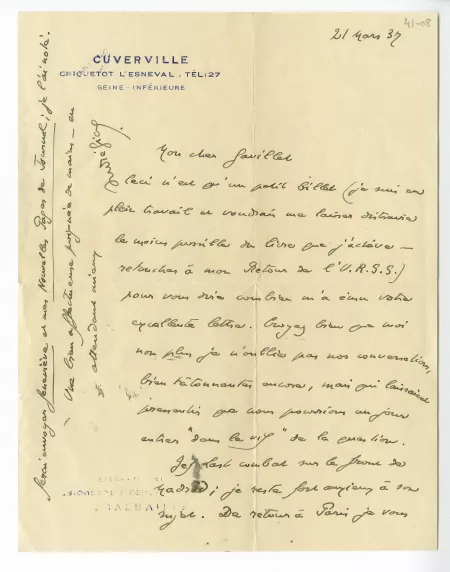 41-08
21 Mars 37
CUVERVILLE
CRIQUETOT L'ESNEVAL . TÉL: 27
SEINE - INFÉRIEURE
Mon cher
Ceci n'est qu'un petit billet (je suis en
plein travail et voudrais me laisser distraire
le moins possible du livre que j'achève —
retouches à mon Retour de l'U.R.S.S.)
pour vous dire combien m'a ému votre
excellente lettre. Croyez bien que moi
non plus je n'oublie pas nos conversations,
bien tâtonnantes encore, mais qui laissaient
pressentir que nous pourrions un jour
entrer "dans le vif" de la question.
Jef Last combat sur le front de
Madrid; je reste fort anxieux à son
sujet. De retour à Paris je vous
ferai envoyer Geneviève et mes Nouvelles Pages de Journal; je l'ai noté.
— Une bien affectueuse poignée de mains — en
attendant mieux